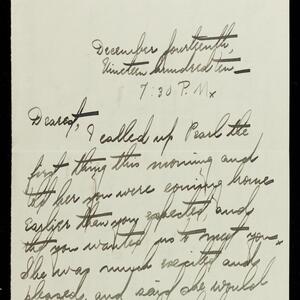 December fourteenth,
Nineteen hundred ten—
7:30 P.M.
Dearest,
I called up Pearl the
first thing this morning and
told her you were coming home
earlier than you expected and
that you wanted us to meet you—
She was much excited and
pleased, and said she would